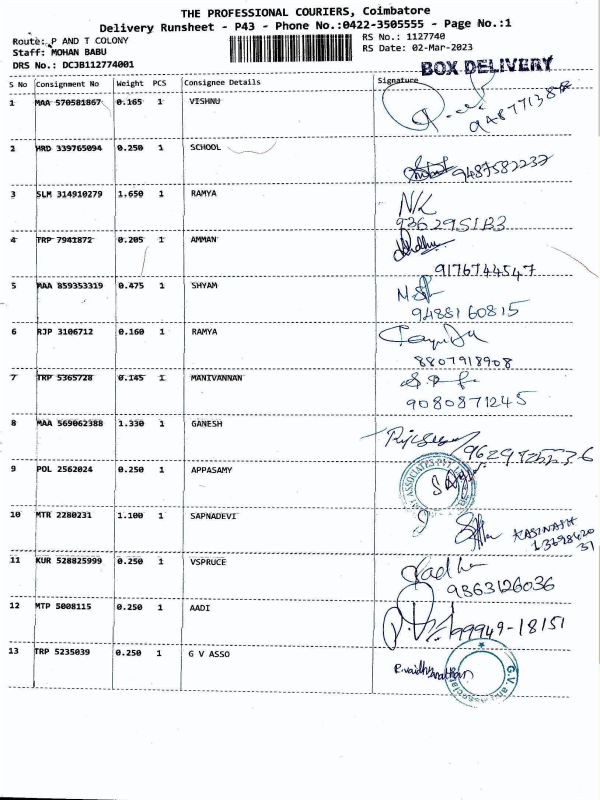 THE PROFESSIONAL COURIERS, Coimbatore
Delivery Runsheet - P43 - Phone No.:0422-3505555 - Page No.:1
Route: P AND T COLONY
RS No.: 1127740
Staff: MOHAN BABU
RS Date: 02-Mar-2023
DRS No.: DCJB112774001
BOX DELIVERY
S No Consignment No Weight PCS Consignee Details Signature
1 MAA 570581867 0.165 1 VISHNU
2 HRD 339765094 0.250 1 SCHOOL
9487582237
3 SLM 314910279 1.650 1 RAMYA
4 TRP 7941872 0.205 1 AMMAN
9176744547
5 MAA 859353319 0.475 1 SHYAM
9488160815
6 RJP 3106712 0.160 1 RAMYA
8807918908
7 TRP 5365728 0.145 1 MANIVANNAN
9080871245
8 MAA 569062388 1.330 1 GANESH
9 POL 2562024 0.250 1 APPASAMY
10 MTR 2280231 1.100 1 SAPNADEVI
KASINATH
11 KUR 528825999 0.250 1 VSPRUCE
9863126036
12 MTP 5008115 0.250 1 AADI
99949-18151
13 TRP 5235039 0.250 1 G V ASSO